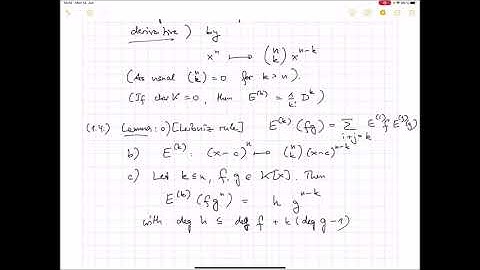 derivative) by
xⁿ ⟼ (n k) xⁿ⁻ᵏ
(As usual (n k) = 0 for k > n).
(If char K = 0, then E⁽ᵏ⁾ = 1/k! Dᵏ)
(1.4.) Lemma: a) [Leibniz rule] E⁽ᵏ⁾(fg) = ∑_{i+j=k} E⁽ⁱ⁾(f) E⁽ʲ⁾(g)
b) E⁽ᵏ⁾: (x-c)ⁿ ⟼ (n k) (x-c)ⁿ⁻ᵏ
c) Let k ≤ n, f, g ∈ K[x]. Then
E⁽ᵏ⁾(f gⁿ) = h gⁿ⁻ᵏ
with deg h ≤ deg f + k (deg g - 1)